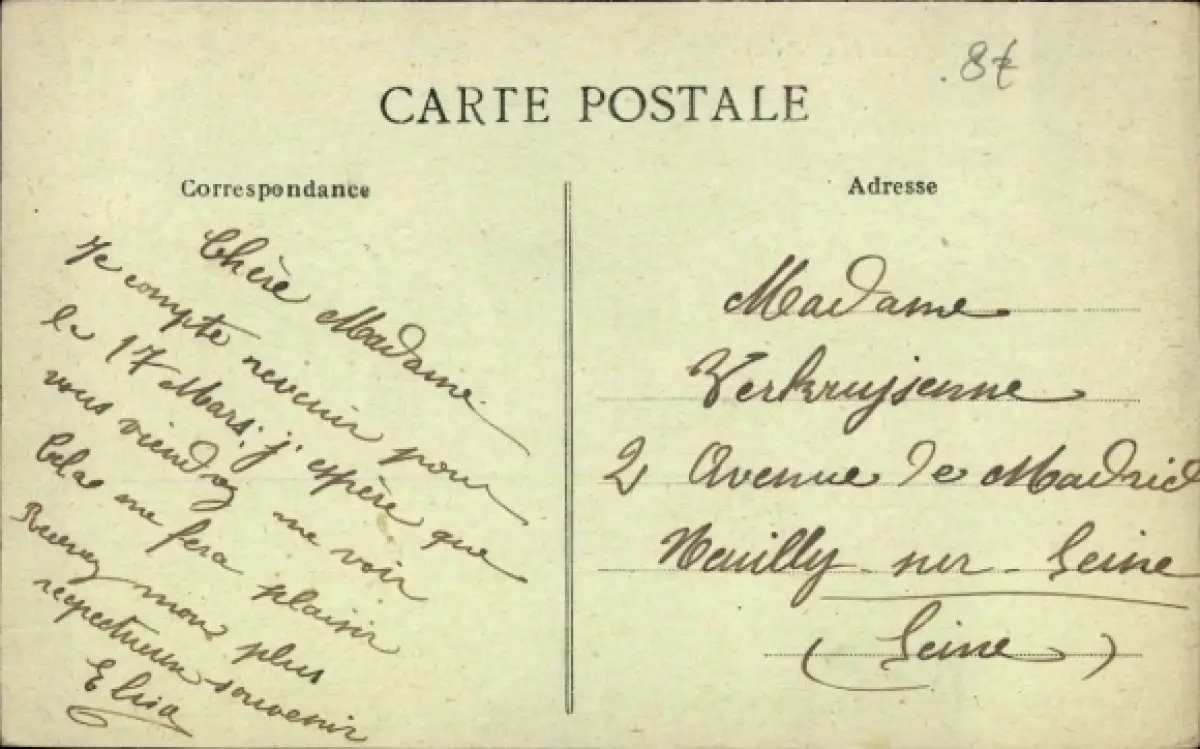 8€
CARTE POSTALE
Correspondance
Chère Madame
Je compte revenir pour
le 17 Mars, j'espère que
vous viendrez me voir
Cela me fera plaisir
Recevez mon plus
respectueux souvenir
Elisa
Adresse
Madame
Verkruysenne
2 Avenue de Madrid
Neuilly sur Seine
(Seine)